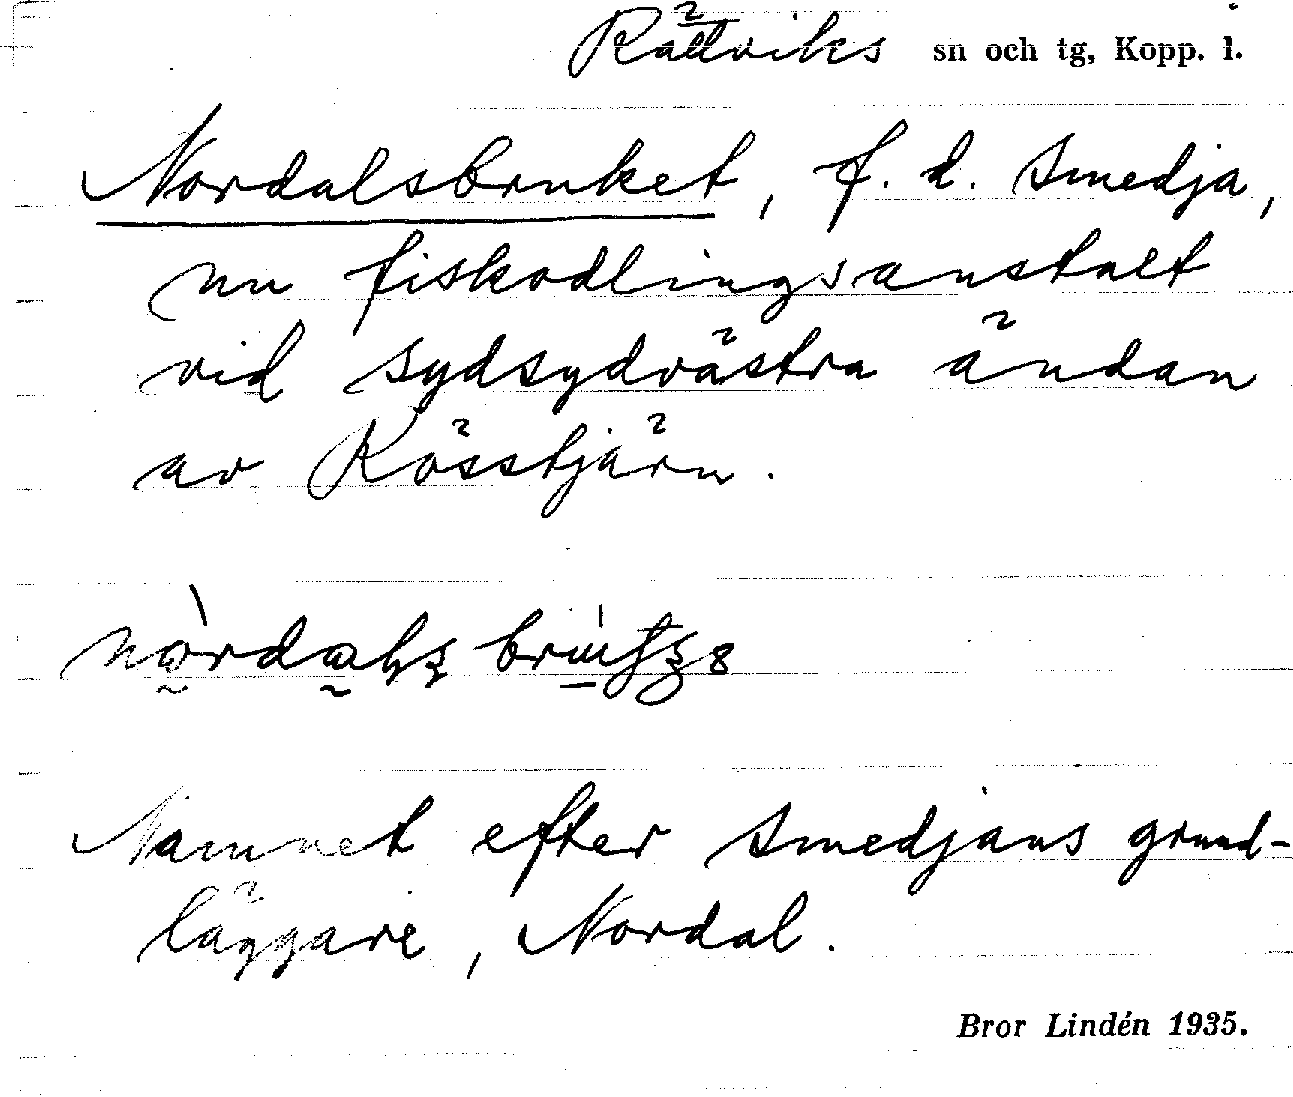 Rättviks sn och tg, Kopp. l.
Nordalsbruket, f. d. smedja,
nu fiskodlingsanstalt
vid sydsydvästra ändan
av Kösstjärn.
Namnet efter smedjans grund-
läggare, Nordal.
Bror Lindén 1935.